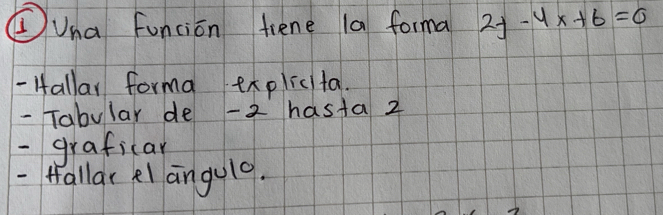 ① Una Función tiene la forma 2y - 4x + 6 = 0
- Hallar forma explicita.
- Tabular de -2 hasta 2
- graficar
- Hallar el ángulo.